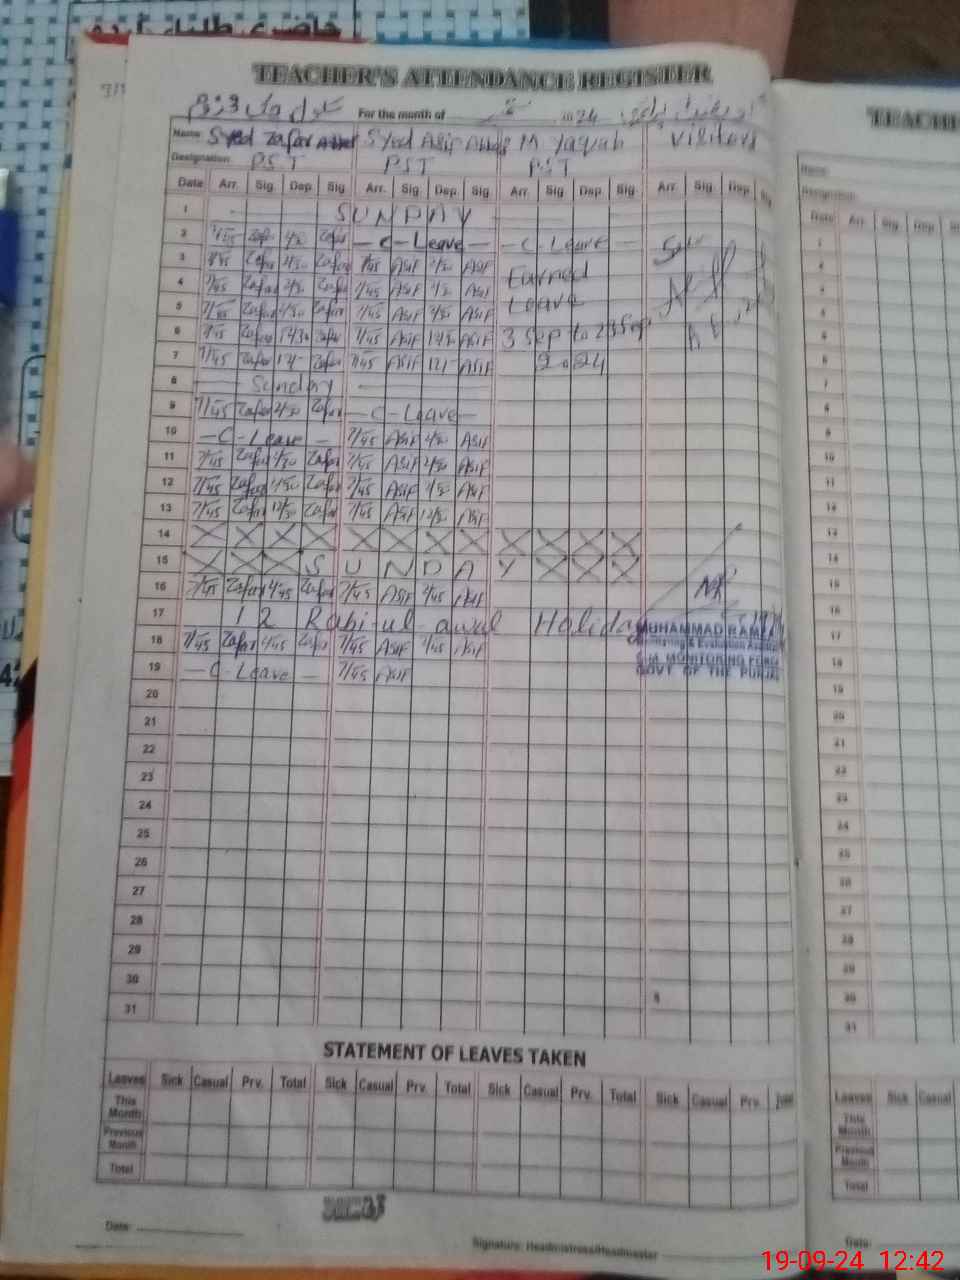 TEACHER'S ATTENDANCE REGISTER
For the month of in 24
Name Syed Zafar Syed Asif M Yaqub Visitors
Designation P.S.T PST PST
Date Arr. Sig. Dep. Sig Arr. Sig. Dep. Sig. Arr. Sig Dep. Sig. Arr. Sig. Dep. Sig
1 SUNDAY
2 7/45 Zafar 1/30 Zafar - C - Leave - - C - Leave -
3 7/45 Zafar 1/30 Zafar 7/45 ASIF 1/30 ASIF Earned
4 7/45 Zafar 1/30 Zafar 7/45 ASIF 1/30 ASIF Leave
5 7/45 Zafar 1/30 Zafar 7/45 ASIF 1/30 ASIF
6 7/45 Zafar Zafar 7/45 ASIF ASIF 3 Sep to Sep
7 7/45 Zafar 12/- Zafar 7/45 ASIF 12/- ASIF 2024
8 Sunday
9 7/45 Zafar 1/30 Zafar - C - Leave -
10 - C - Leave - 7/45 ASIF 1/30 ASIF
11 7/45 Zafar 1/30 Zafar 7/45 ASIF 1/30 ASIF
12 7/45 Zafar 1/30 Zafar 7/45 ASIF 1/30 ASIF
13 7/45 Zafar 12/30 Zafar 7/45 ASIF 12/30 ASIF
14
15 S U N D A Y
16 7/45 Zafar 1/45 Zafar 7/45 ASIF 1/45 ASIF
17 12 Rabi-ul-awal Holiday
18 7/45 Zafar 1/45 Zafar 7/45 ASIF 1/45 ASIF
19 - C - Leave - 7/45 ASIF
MUHAMMAD RAMZAN
Monitoring & Evaluation
C.M. MONITORING FORCE
GOVT OF THE PUNJAB
20
21
22
23
24
25
26
27
28
29
30
31
STATEMENT OF LEAVES TAKEN
Leaves Sick Casual Prv. Total Sick Casual Prv. Total Sick Casual Prv. Total Sick Casual Prv. Total
This Month
Previous Month
Total
Date:
Signature: Headmistress/Headmaster
TEACHE
Name
Designation
Date Arr. Sig. Dep. Sig
Leaves Sick Casual
This Month
Previous Month
Total
Date:
19-09-24 12:42